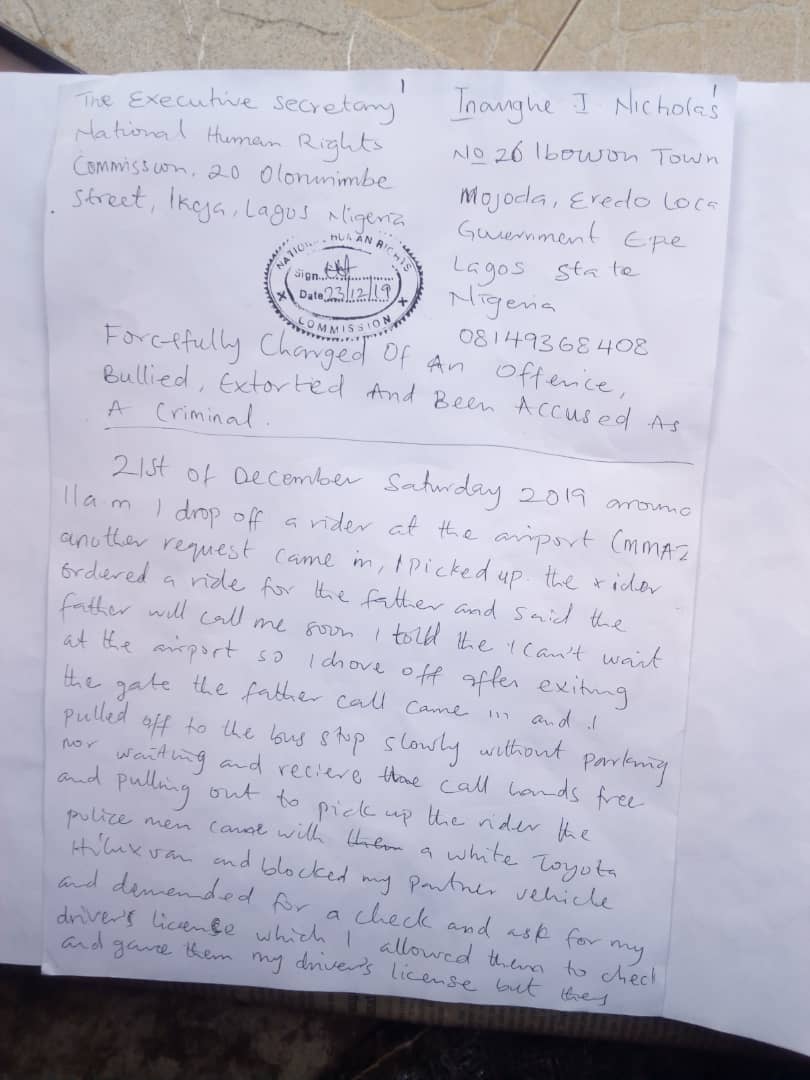 The Executive Secretary
National Human Rights
Commission, 20 Olorunimbe
Street, Ikeja, Lagos Nigeria
Inanghe I Nicholas
No 26 Ibowon Town
Mojoda, Eredo Loca
Government Epe
Lagos State
Nigeria
08149368408
NATION HUMAN RIGHTS
Sign...
Date 23/12/19
COMMISSION
Forcefully Charged Of An Offence,
Bullied, Extorted And Been Accused As
A Criminal.
21st of December Saturday 2019 around
11a.m I drop off a rider at the airport (MMA2
another request came in, I picked up the rider
ordered a ride for the father and said the
father will call me soon I told the I can't wait
at the airport so I drove off after exiting
the gate the father call came in and I
pulled off to the bus stop slowly without parking
nor waiting and recieve the call hands free
and pulling out to pick up the rider the
police men came with them a white Toyota
Hilux van and blocked my partner vehicle
and demended for a check and ask for my
driver's license which I allowed them to check
and gave them my driver's license but they